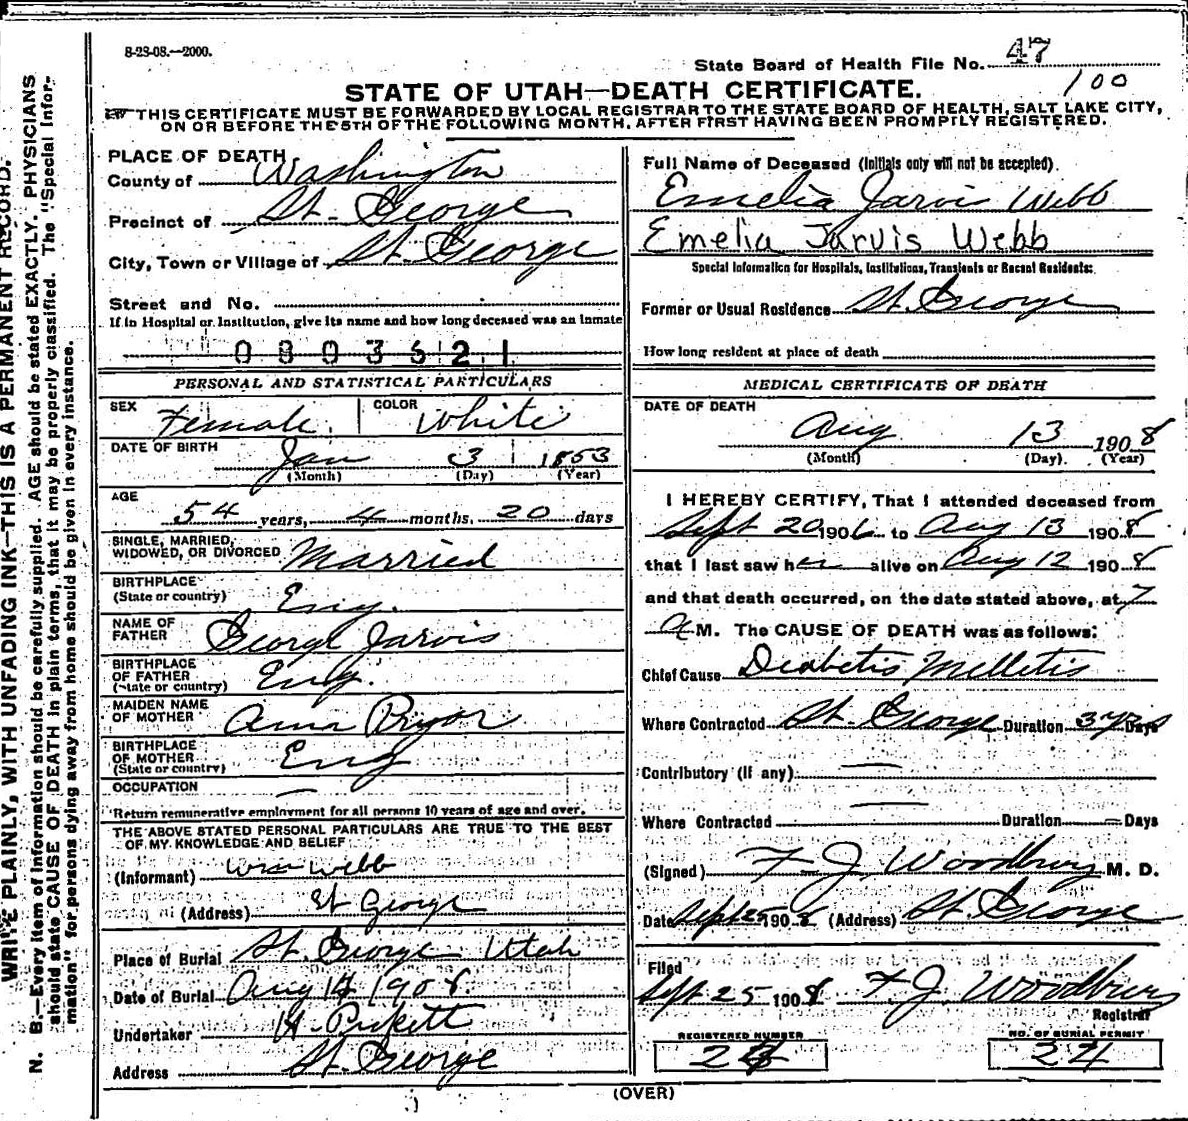 8-23-08.—2000.
State Board of Health File No. 47
100
STATE OF UTAH—DEATH CERTIFICATE.
THIS CERTIFICATE MUST BE FORWARDED BY LOCAL REGISTRAR TO THE STATE BOARD OF HEALTH, SALT LAKE CITY,
ON OR BEFORE THE 5TH OF THE FOLLOWING MONTH, AFTER FIRST HAVING BEEN PROMPTLY REGISTERED.
WRITE PLAINLY, WITH UNFADING INK—THIS IS A PERMANENT RECORD.
N. B.—Every item of information should be carefully supplied. AGE should be stated EXACTLY. PHYSICIANS
should state CAUSE OF DEATH in plain terms, that it may be properly classified. The "Special Infor-
mation" for persons dying away from home should be given in every instance.
PLACE OF DEATH
County of Washington
Precinct of St. George
City, Town or Village of St. George
Street and No.
If in Hospital or Institution, give its name and how long deceased was an inmate
0803621
PERSONAL AND STATISTICAL PARTICULARS
SEX Female COLOR White
DATE OF BIRTH Jan 3 1853
(Month) (Day) (Year)
AGE
54 years, 4 months, 20 days
SINGLE, MARRIED,
WIDOWED, OR DIVORCED Married
BIRTHPLACE
(State or country) Eng.
NAME OF
FATHER George Jarvis
BIRTHPLACE
OF FATHER
(State or country) Eng.
MAIDEN NAME
OF MOTHER Anna Pryor
BIRTHPLACE
OF MOTHER
(State or country) Eng
OCCUPATION —
Return remunerative employment for all persons 10 years of age and over.
THE ABOVE STATED PERSONAL PARTICULARS ARE TRUE TO THE BEST
OF MY KNOWLEDGE AND BELIEF
(Informant) Wm Webb
(Address) St George
Place of Burial St. George Utah
Date of Burial Aug 14 1908.
Undertaker H. Pickett
Address St. George
Full Name of Deceased (Initials only will not be accepted).
Emelia Jarvis Webb
Emelia Jarvis Webb
Special Information for Hospitals, Institutions, Transients or Recent Residents:
Former or Usual Residence St. George
How long resident at place of death
MEDICAL CERTIFICATE OF DEATH
DATE OF DEATH
Aug 13 1908
(Month) (Day). (Year)
I HEREBY CERTIFY, That I attended deceased from
Sept 20 1906 to Aug 13 1908
that I last saw her alive on Aug 12 1908
and that death occurred, on the date stated above, at 7
A M. The CAUSE OF DEATH was as follows:
Chief Cause Diabetis Melletis
Where Contracted St. George Duration 3 yrs Days
Contributory (if any) —
—
Where Contracted Duration — Days
(Signed) F J Woodbury M. D.
Date Sept 25 1908 (Address) St. George
Filed
Sept 25 1908 F. J. Woodbury
Registrar
REGISTERED NUMBER
NO. OF BURIAL PERMIT
24
(OVER)